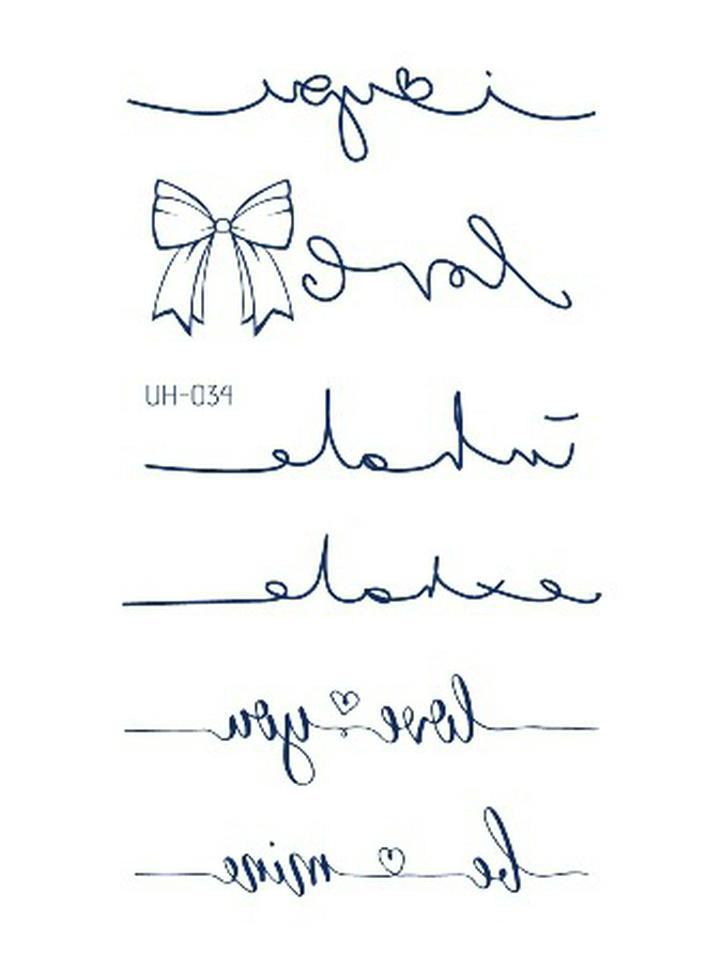 i ♡ you
love
UH-034
inhale
exhale
love ♡ you
be ♡ mine